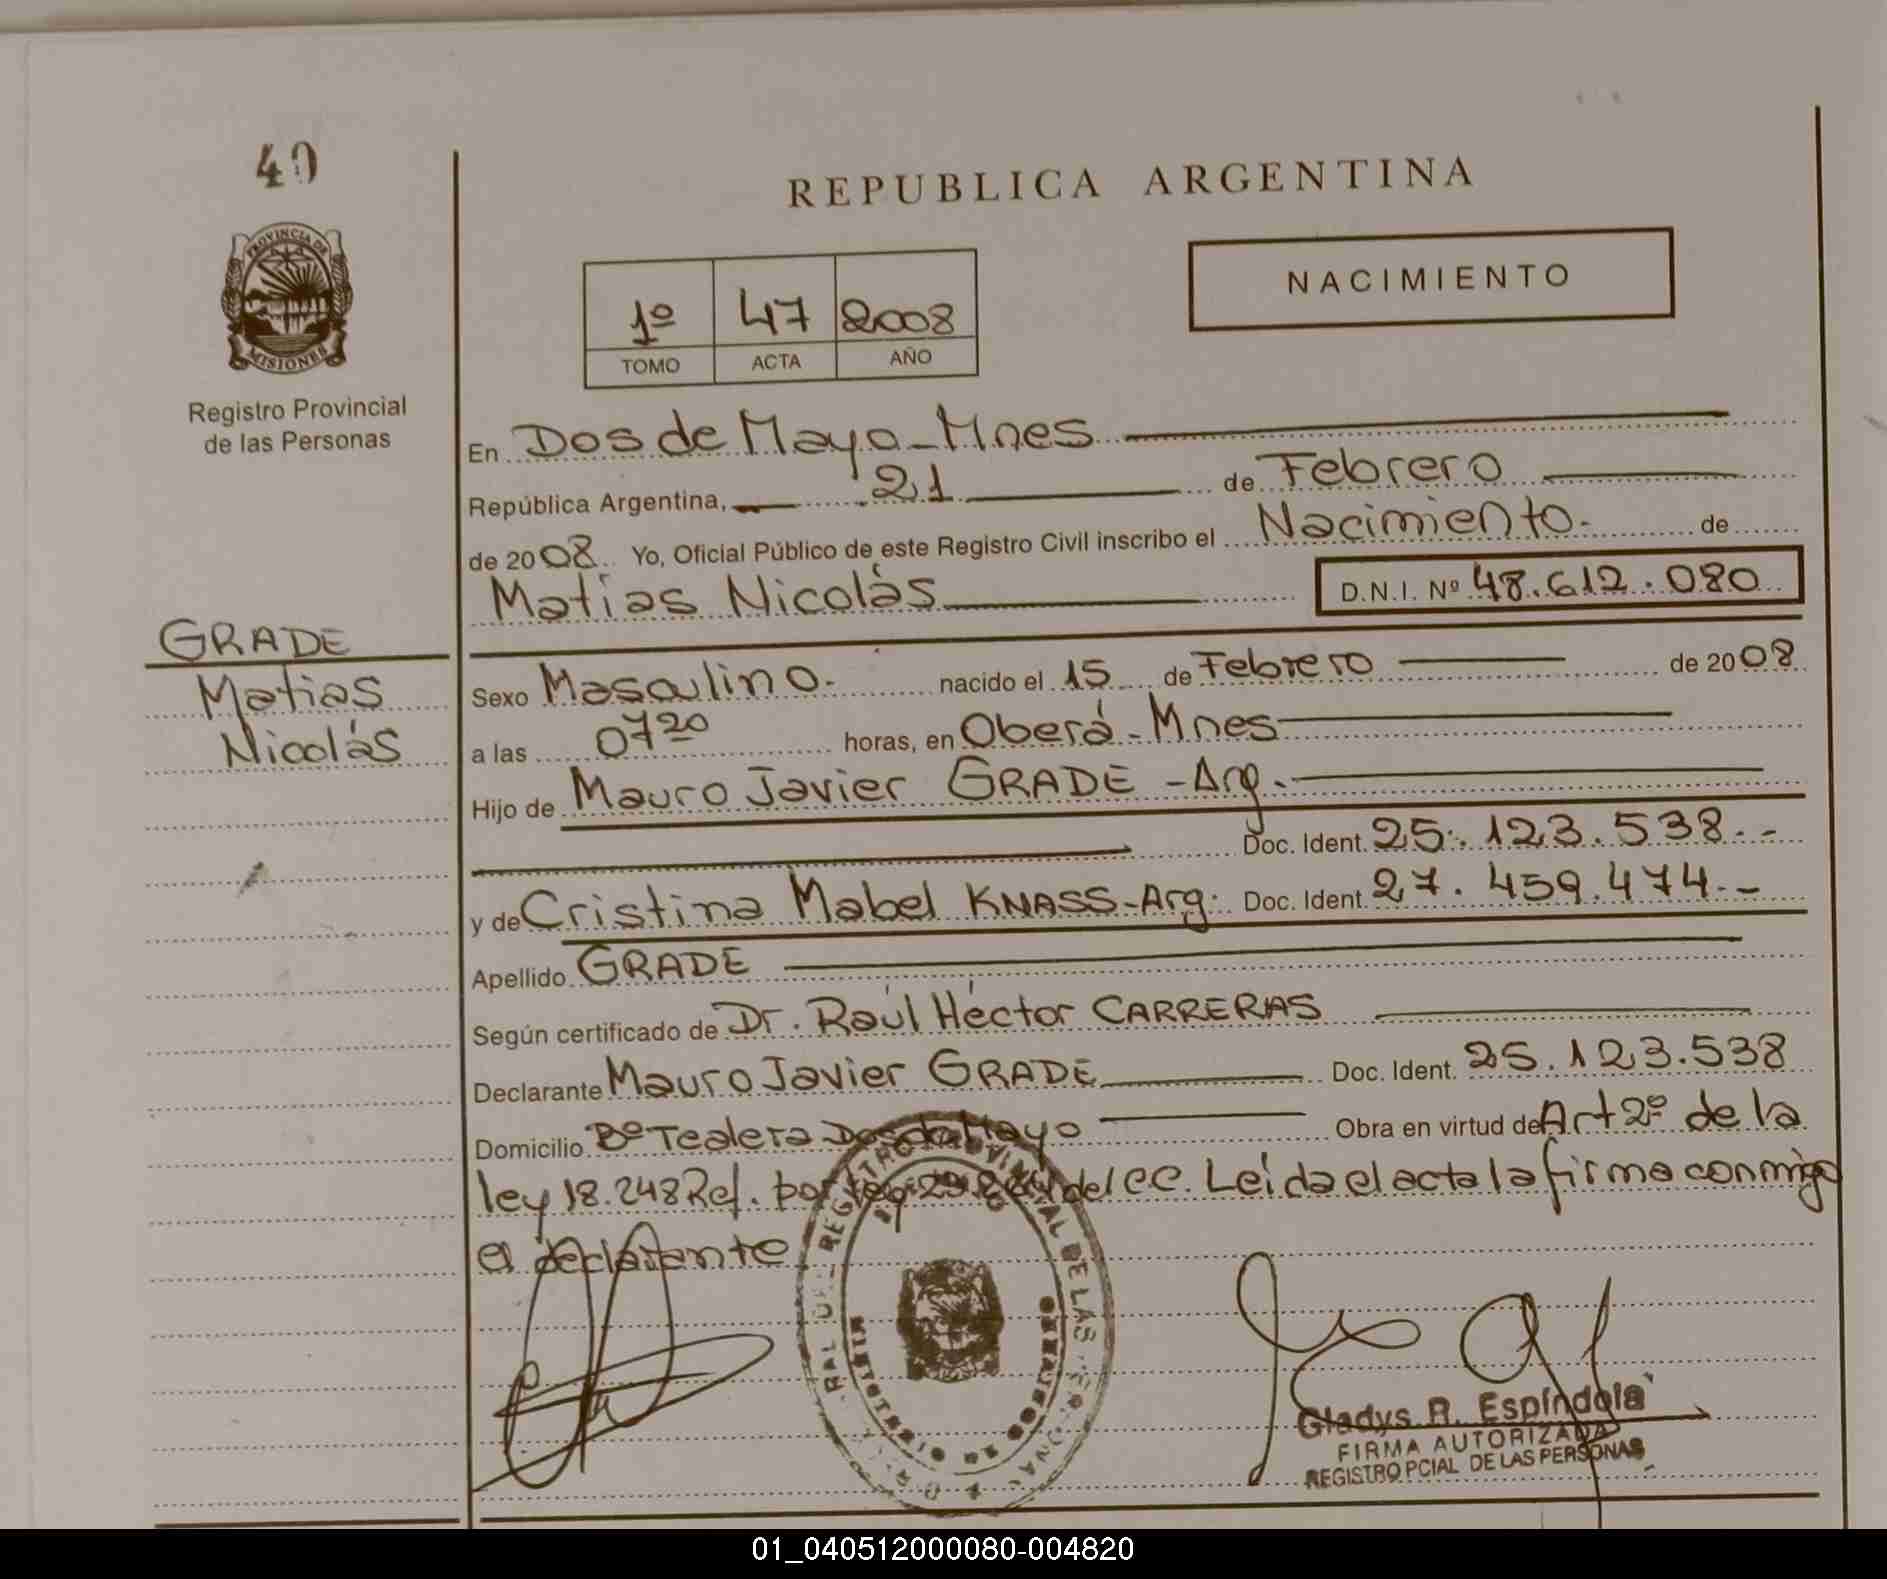 40
PROVINCIA DE
MISIONES
Registro Provincial
de las Personas
REPUBLICA ARGENTINA
NACIMIENTO
1º 47 2008
TOMO ACTA AÑO
En Dos de Mayo - Mnes
República Argentina, 21 de Febrero
de 2008 Yo, Oficial Público de este Registro Civil inscribo el Nacimiento. de
Matias Nicolás D.N.I. Nº 48.612.080
GRADE
Matias
Nicolás
Sexo Masculino. nacido el 15 de Febrero de 2008
a las 07 20 horas, en Oberá - Mnes
Hijo de Mauro Javier GRADE - Arg.
Doc. Ident. 25.123.538.-
y de Cristina Mabel KNASS - Arg. Doc. Ident. 27.459.474.-
Apellido GRADE
Según certificado de Dr. Raúl Héctor CARRERAS
Declarante Mauro Javier GRADE Doc. Ident. 25.123.538
Domicilio Bº Tealera Dos de Mayo Obra en virtud de Art 2º de la
ley 18.248 Ref. por ley del CC. Leida el acta la firma conmigo
el declarante
REGISTRO PROVINCIAL DE LAS
Gladys R. Espíndola
FIRMA AUTORIZADA
REGISTRO PCIAL DE LAS PERSONAS
01_040512000080-004820